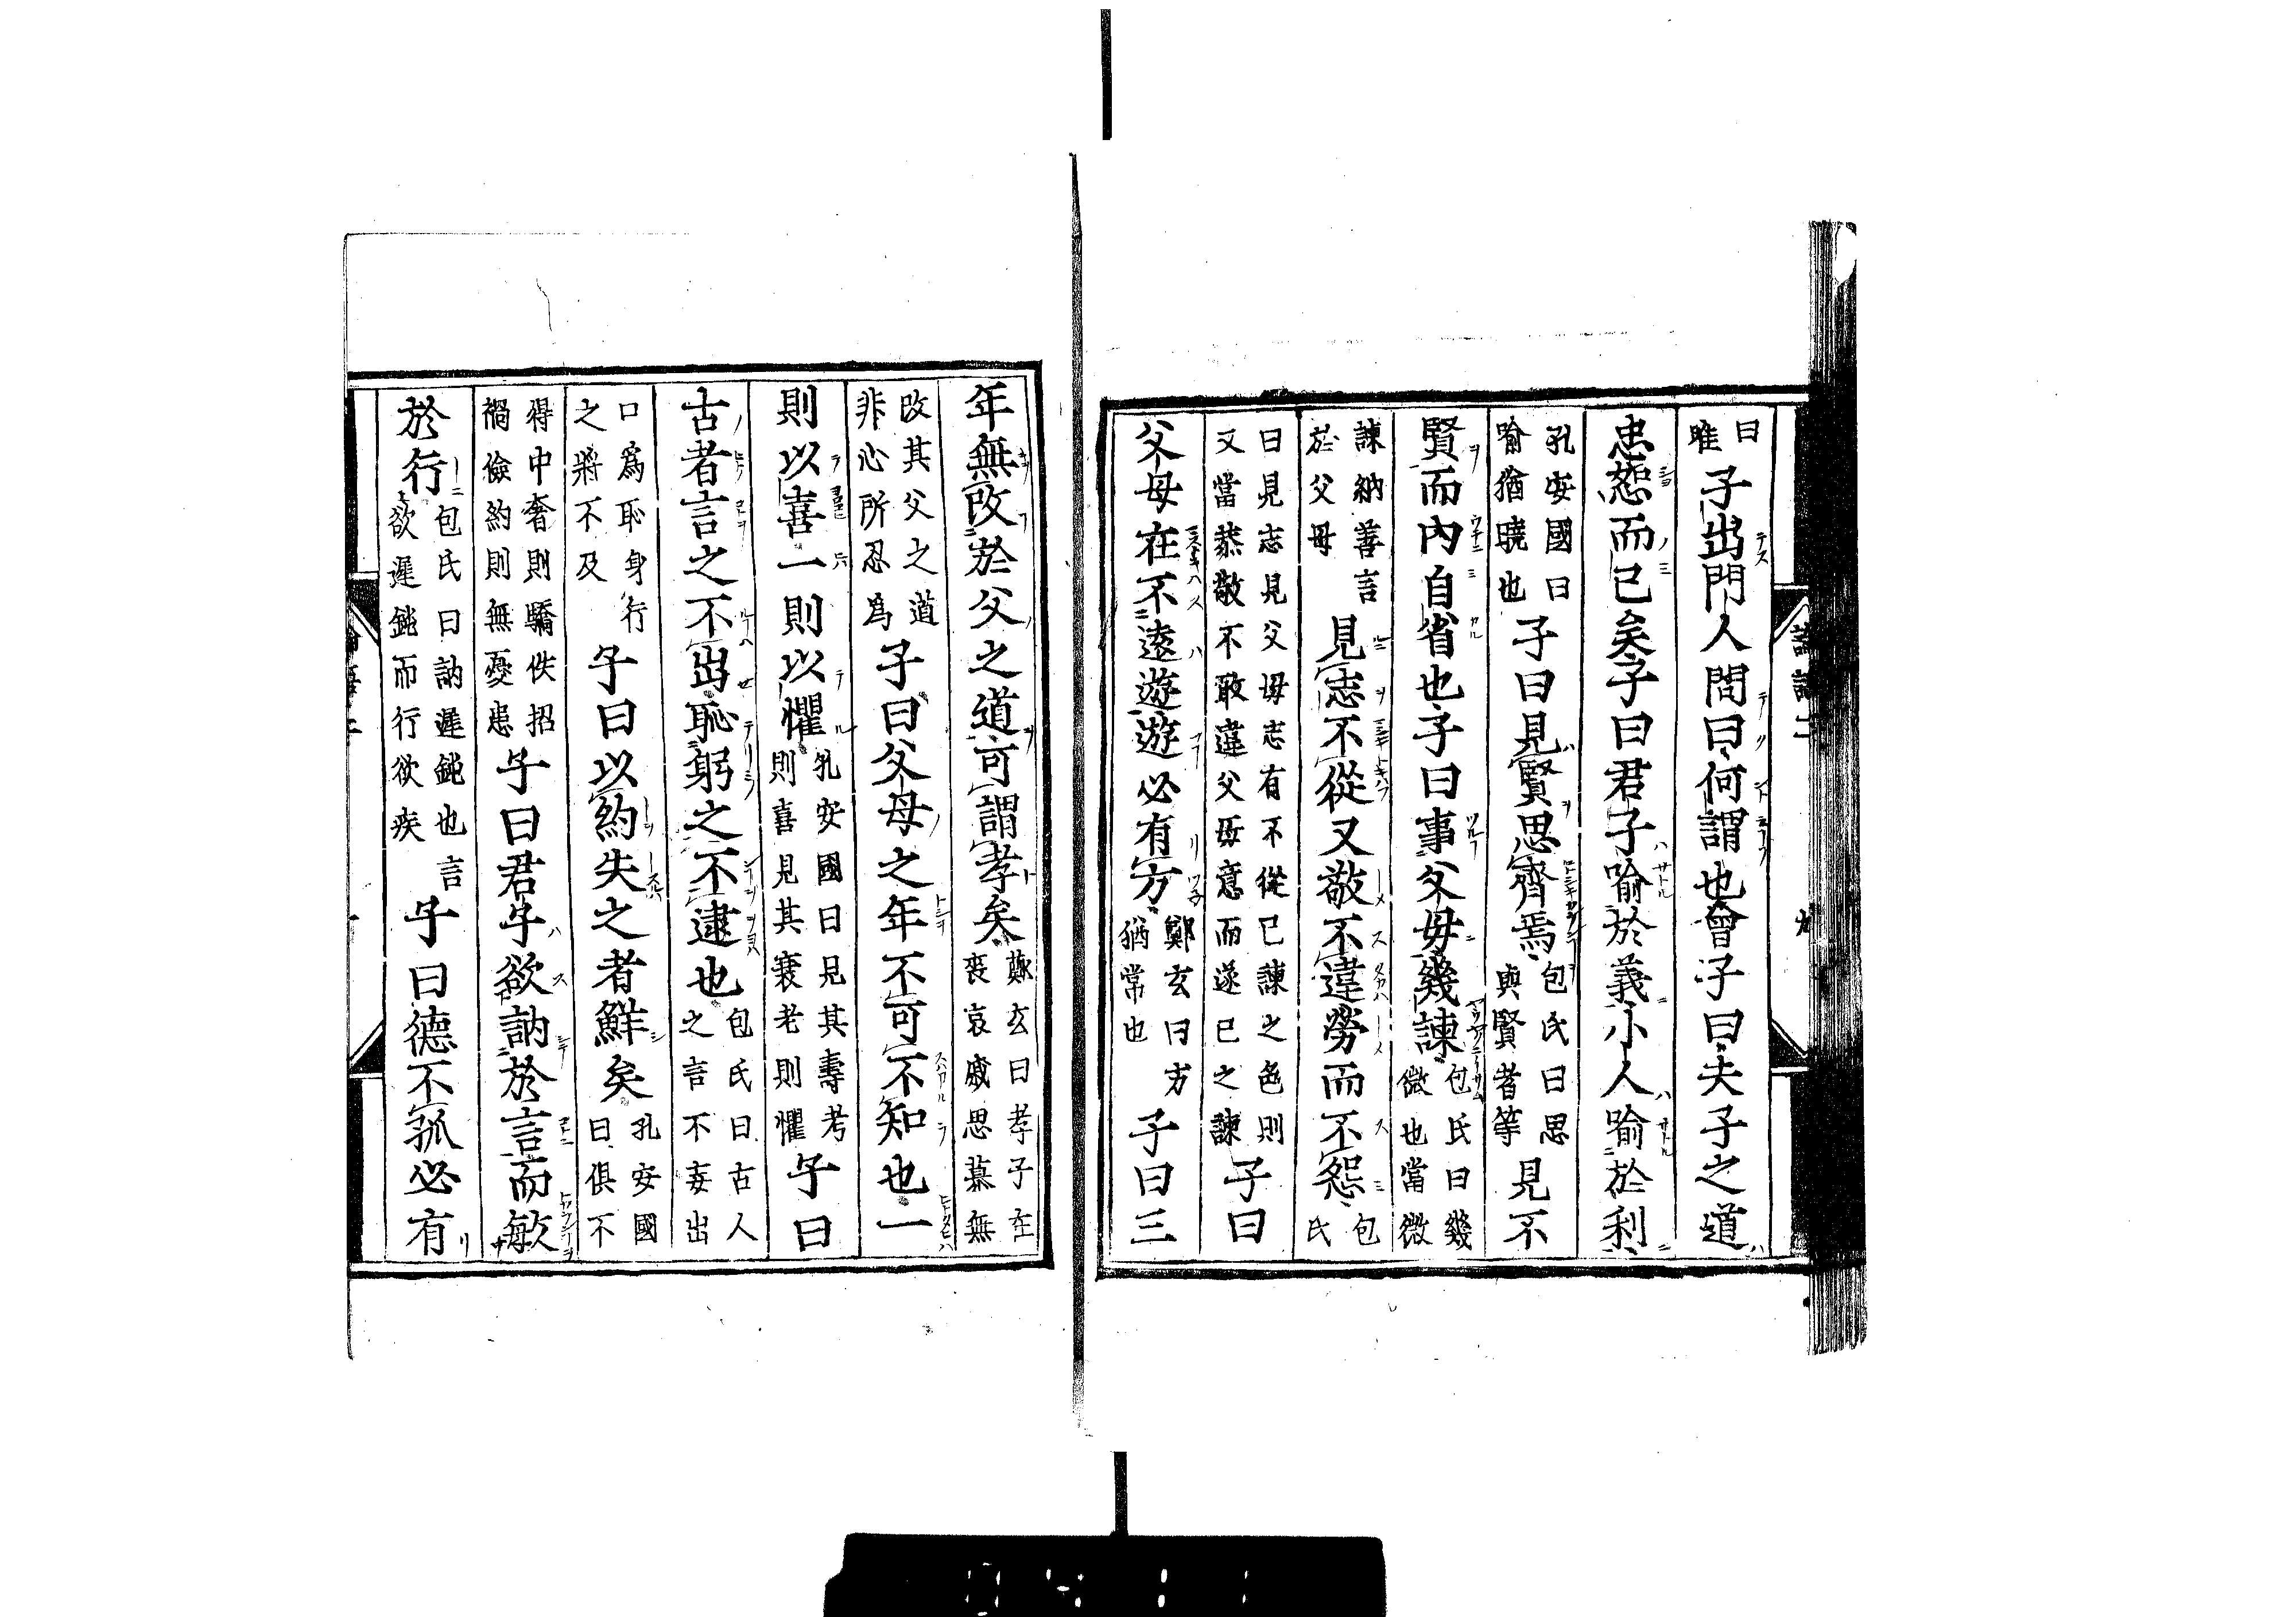 曰唯子出門人問曰何謂也曾子曰夫子之道
忠恕而已矣子曰君子喻於義小人喻於利
孔安國曰喻猶曉也子曰見賢思齊焉包氏曰思與賢者等見不
賢而内自省也子曰事父母幾諫包氏曰幾微也當微
諫納善言於父母見志不從又敬不違勞而不怨包氏
曰見志見父母志有不從已諫之色則又當恭敬不敢違父母意而遂已之諫子曰
父母在不遠遊遊必有方鄭玄曰方猶常也子曰三
年無改於父之道可謂孝矣鄭玄曰孝子在喪哀戚思慕無
改其父之道非心所忍爲子曰父母之年不可不知也一
則以喜一則以懼孔安國曰見其壽考則喜見其衰老則懼子曰
古者言之不出恥躬之不逮也包氏曰古人之言不妄出
口爲恥身行之將不及子曰以約失之者鮮矣孔安國曰俱不
得中奢則驕佚招禍儉約則無憂患子曰君子欲訥於言而敏
於行包氏曰訥遲鈍也言欲遲鈍而行欲疾子曰德不孤必有